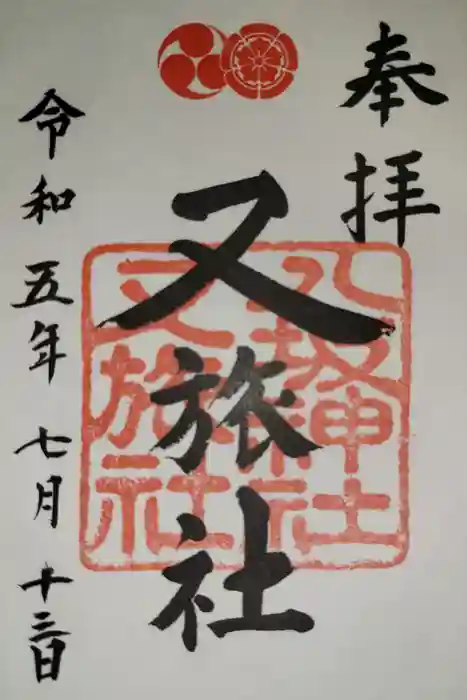 奉拝
又旅社
八坂神社
又旅社
令和五年七月十三日